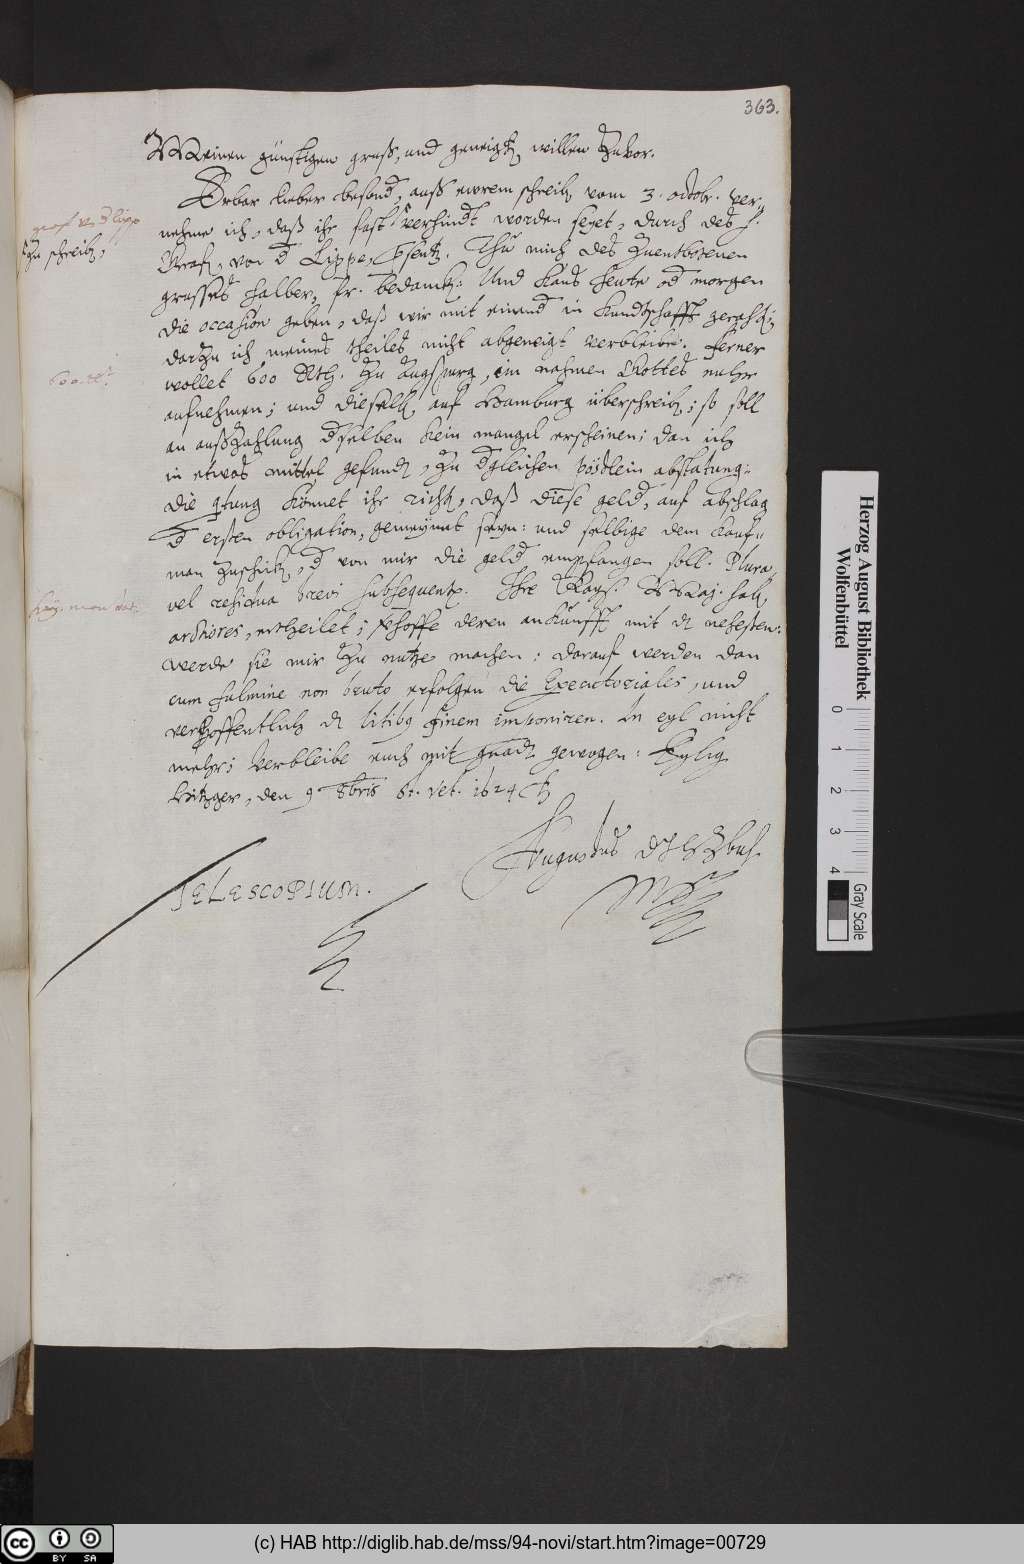 363.
Meinen günstigen gruß, und geneigten willen zuvor.
Erbar lieber besonder, auß ewrem schreiben vom 3. octobr. ver-
nehme ich, daß ihr fast verhindert worden seyet, durch des h.
graf v. d. Lippe
zu schreiben,
Grafen, von der Lippe, . Thu mich des zuentbotenen
grusses halber, fr. bedancken: Und kans heute oder morgen
die occasion geben, daß wir mit einander in Kundtschafft gerahten;
darzu ich meines theiles nicht abgeneigt verbleibe. Ferner
600
wollet 600 Rth. zu Augspurg, im nahmen Gottes
aufnehmen; und dieselben auf Hamburg überschreiben; so soll
an außzahlung derselben kein mangel erscheinen; dan ich
in etwas mittel gefunden, zu dergleichen pöstlein abstatung:
die könnet ihr richten, daß diese gelder, auf abschlag
der ersten obligation, gemeynet seyn: und selbige dem kauf-
man zuschicken, der von mir die gelder empfangen soll. Plura
vel residua brevi subsequentur. Ihre Kays. Maj. haben
arctiores, ertheilet; hoffe deren ankunfft mit der nehesten:
werde sie mir zu nutze machen: darauf werden dan
cum fulmine non bruto erfolgen die Executoriales, und
verhoffentlich der litibus finem imponiren. In eyl nicht
mehr; Verbleibe euch mit gnaden gewogen: Eylig
Hitzger, den 9 8bris st. vet. 1624
Augustus
TELESCOPIUM.
Herzog August Bibliothek
Wolfenbüttel
0 1 2 3 4
Gray Scale
(c) HAB http://diglib.hab.de/mss/94-novi/start.htm?image=00729
cc BY SA